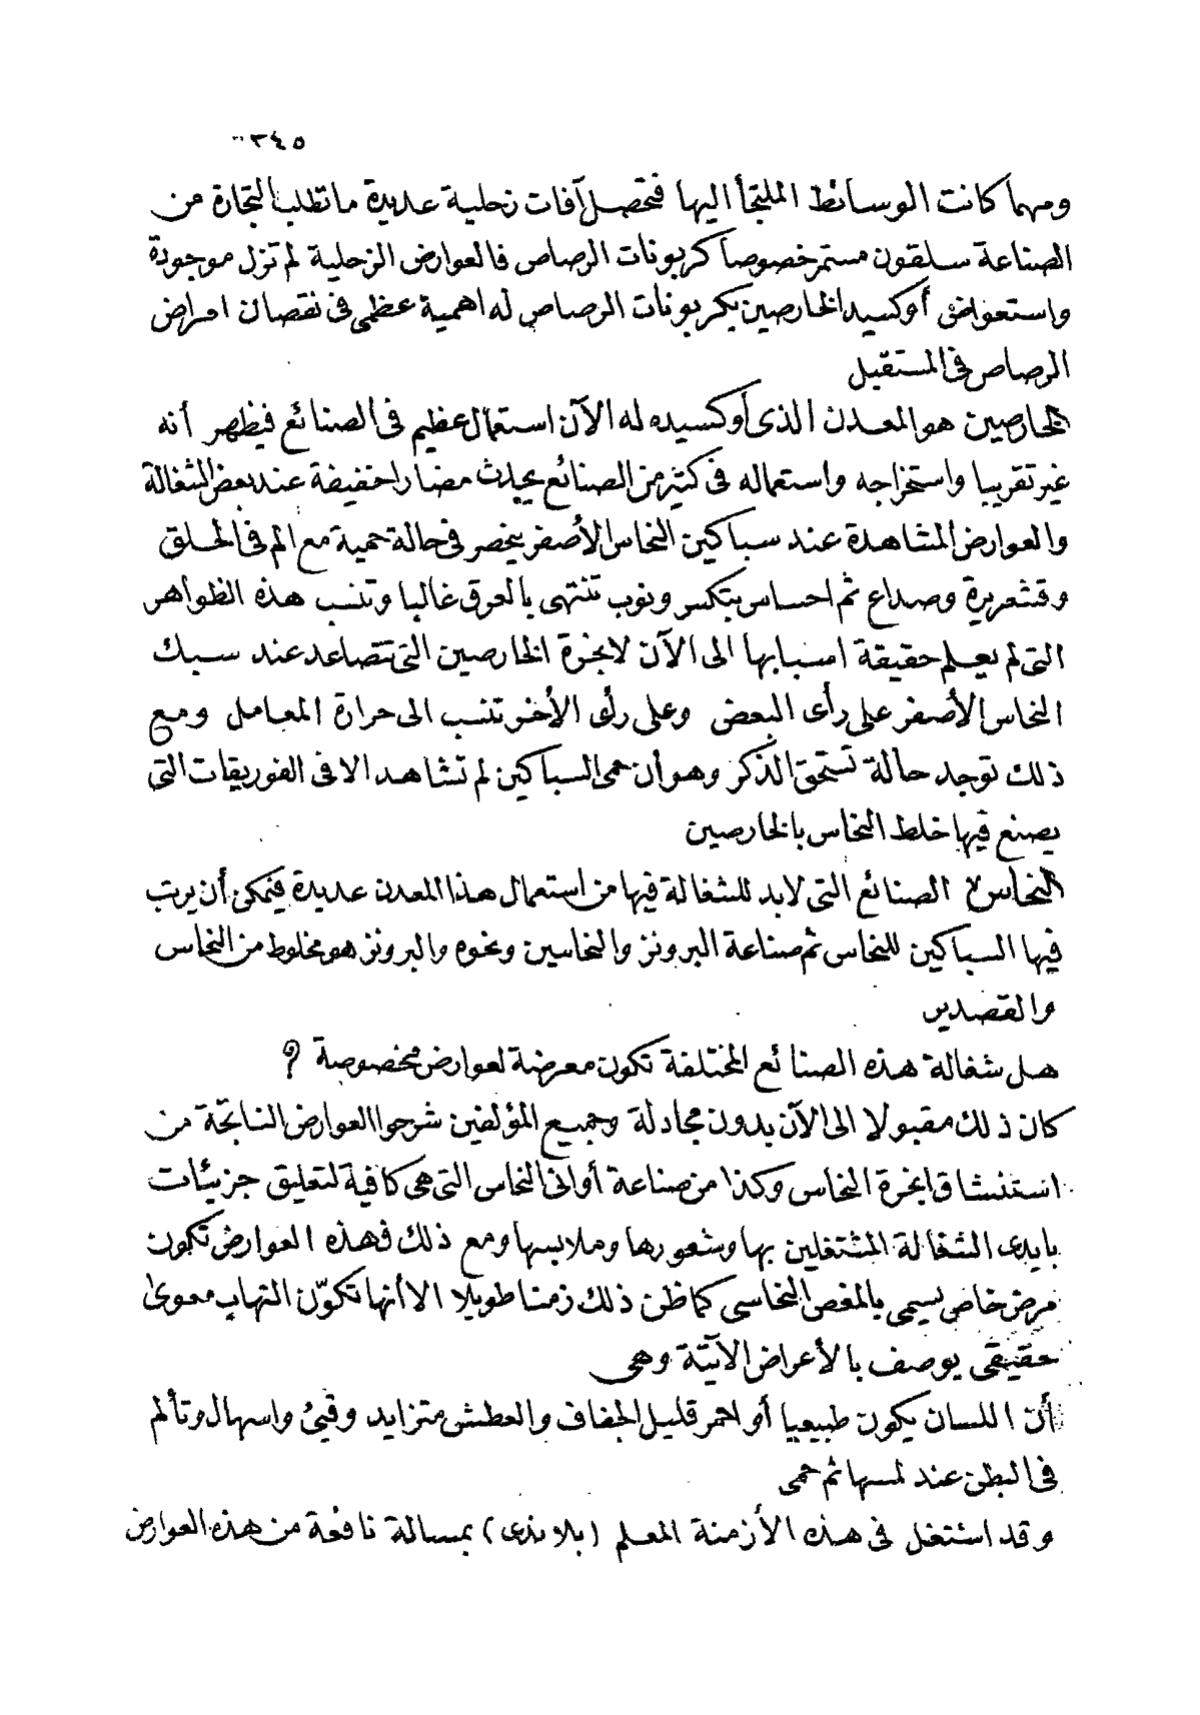 ٣٤٥
ومهما كانت الوسائط الملتجأ اليها فتحصل آفات زحلية عديدة ما تطلب التجارة من
الصناعة سلقون مستمر خصوصا كربونات الرصاص فالعوارض الزحلية لم تزل موجودة
واستعواض أوكسيد الخارصين بكربونات الرصاص له اهمية عظمى فى نقصان امراض
الرصاص فى المستقبل
الخارصين هو المعدن الذى أوكسيده له الآن استعمال عظيم فى الصنائع فيظهر أنه
غير تقريبا واستخراجه واستعماله فى كثير من الصنائع يحدث مضارا خفيفة عند بعض الشغالة
والعوارض المشاهدة عند سباكين النحاس الأصفر ينحصر فى حالة حمية مع الم فى الحلق
وقشعريرة وصداع ثم احساس بتكسر ونوب تنتهى بالعرق غالبا وتنسب هذه الظواهر
التى لم يعلم حقيقة اسبابها الى الآن لابخرة الخارصين التى تتصاعد عند سبك
النحاس الأصفر على رأى البعض وعلى رأى الأخر تنسب الى حرارة المعامل ومع
ذلك توجد حالة تستحق الذكر وهو أن حمى السباكين لم تشاهد الا فى الفوريقات التى
يصنع فيها خلط النحاس بالخارصين
النحاس الصنائع التى لابد للشغالة فيها من استعمال هذا المعدن عديدة فيمكن أن يرتب
فيها السباكين للنحاس ثم صناعة البرونز والنحاسين ونحوه والبرونز هو مخلوط من النحاس
والقصدير
هل شغالة هذه الصنائع المختلفة تكون معرضة لعوارض مخصوصة ؟
كان ذلك مقبولا الى الآن بدون مجادلة وجميع المؤلفين شرحوا العوارض الناتجة من
استنشاق ابخرة النحاس وكذا من صناعة أوانى النحاس التى هى كافية لتعليق جزيئات
بايدى الشغالة المشتغلين بها وشعورها وملابسها ومع ذلك فهذه العوارض تكون
مرض خاص يسمى بالمغص النحاسى كما ظن ذلك زمنا طويلا الا أنها تكوّن التهاب معوى
حقيقى يوصف بالأعراض الآتية وهى
أن اللسان يكون طبيعيا أو احمر قليل الجفاف والعطش متزايد وقيئ واسهال وتألم
فى البطن عند لمسها ثم حمى
وقد اشتغل فى هذه الأزمنة المعلم (بلاندى) بمسالة نافعة من هذه العوارض